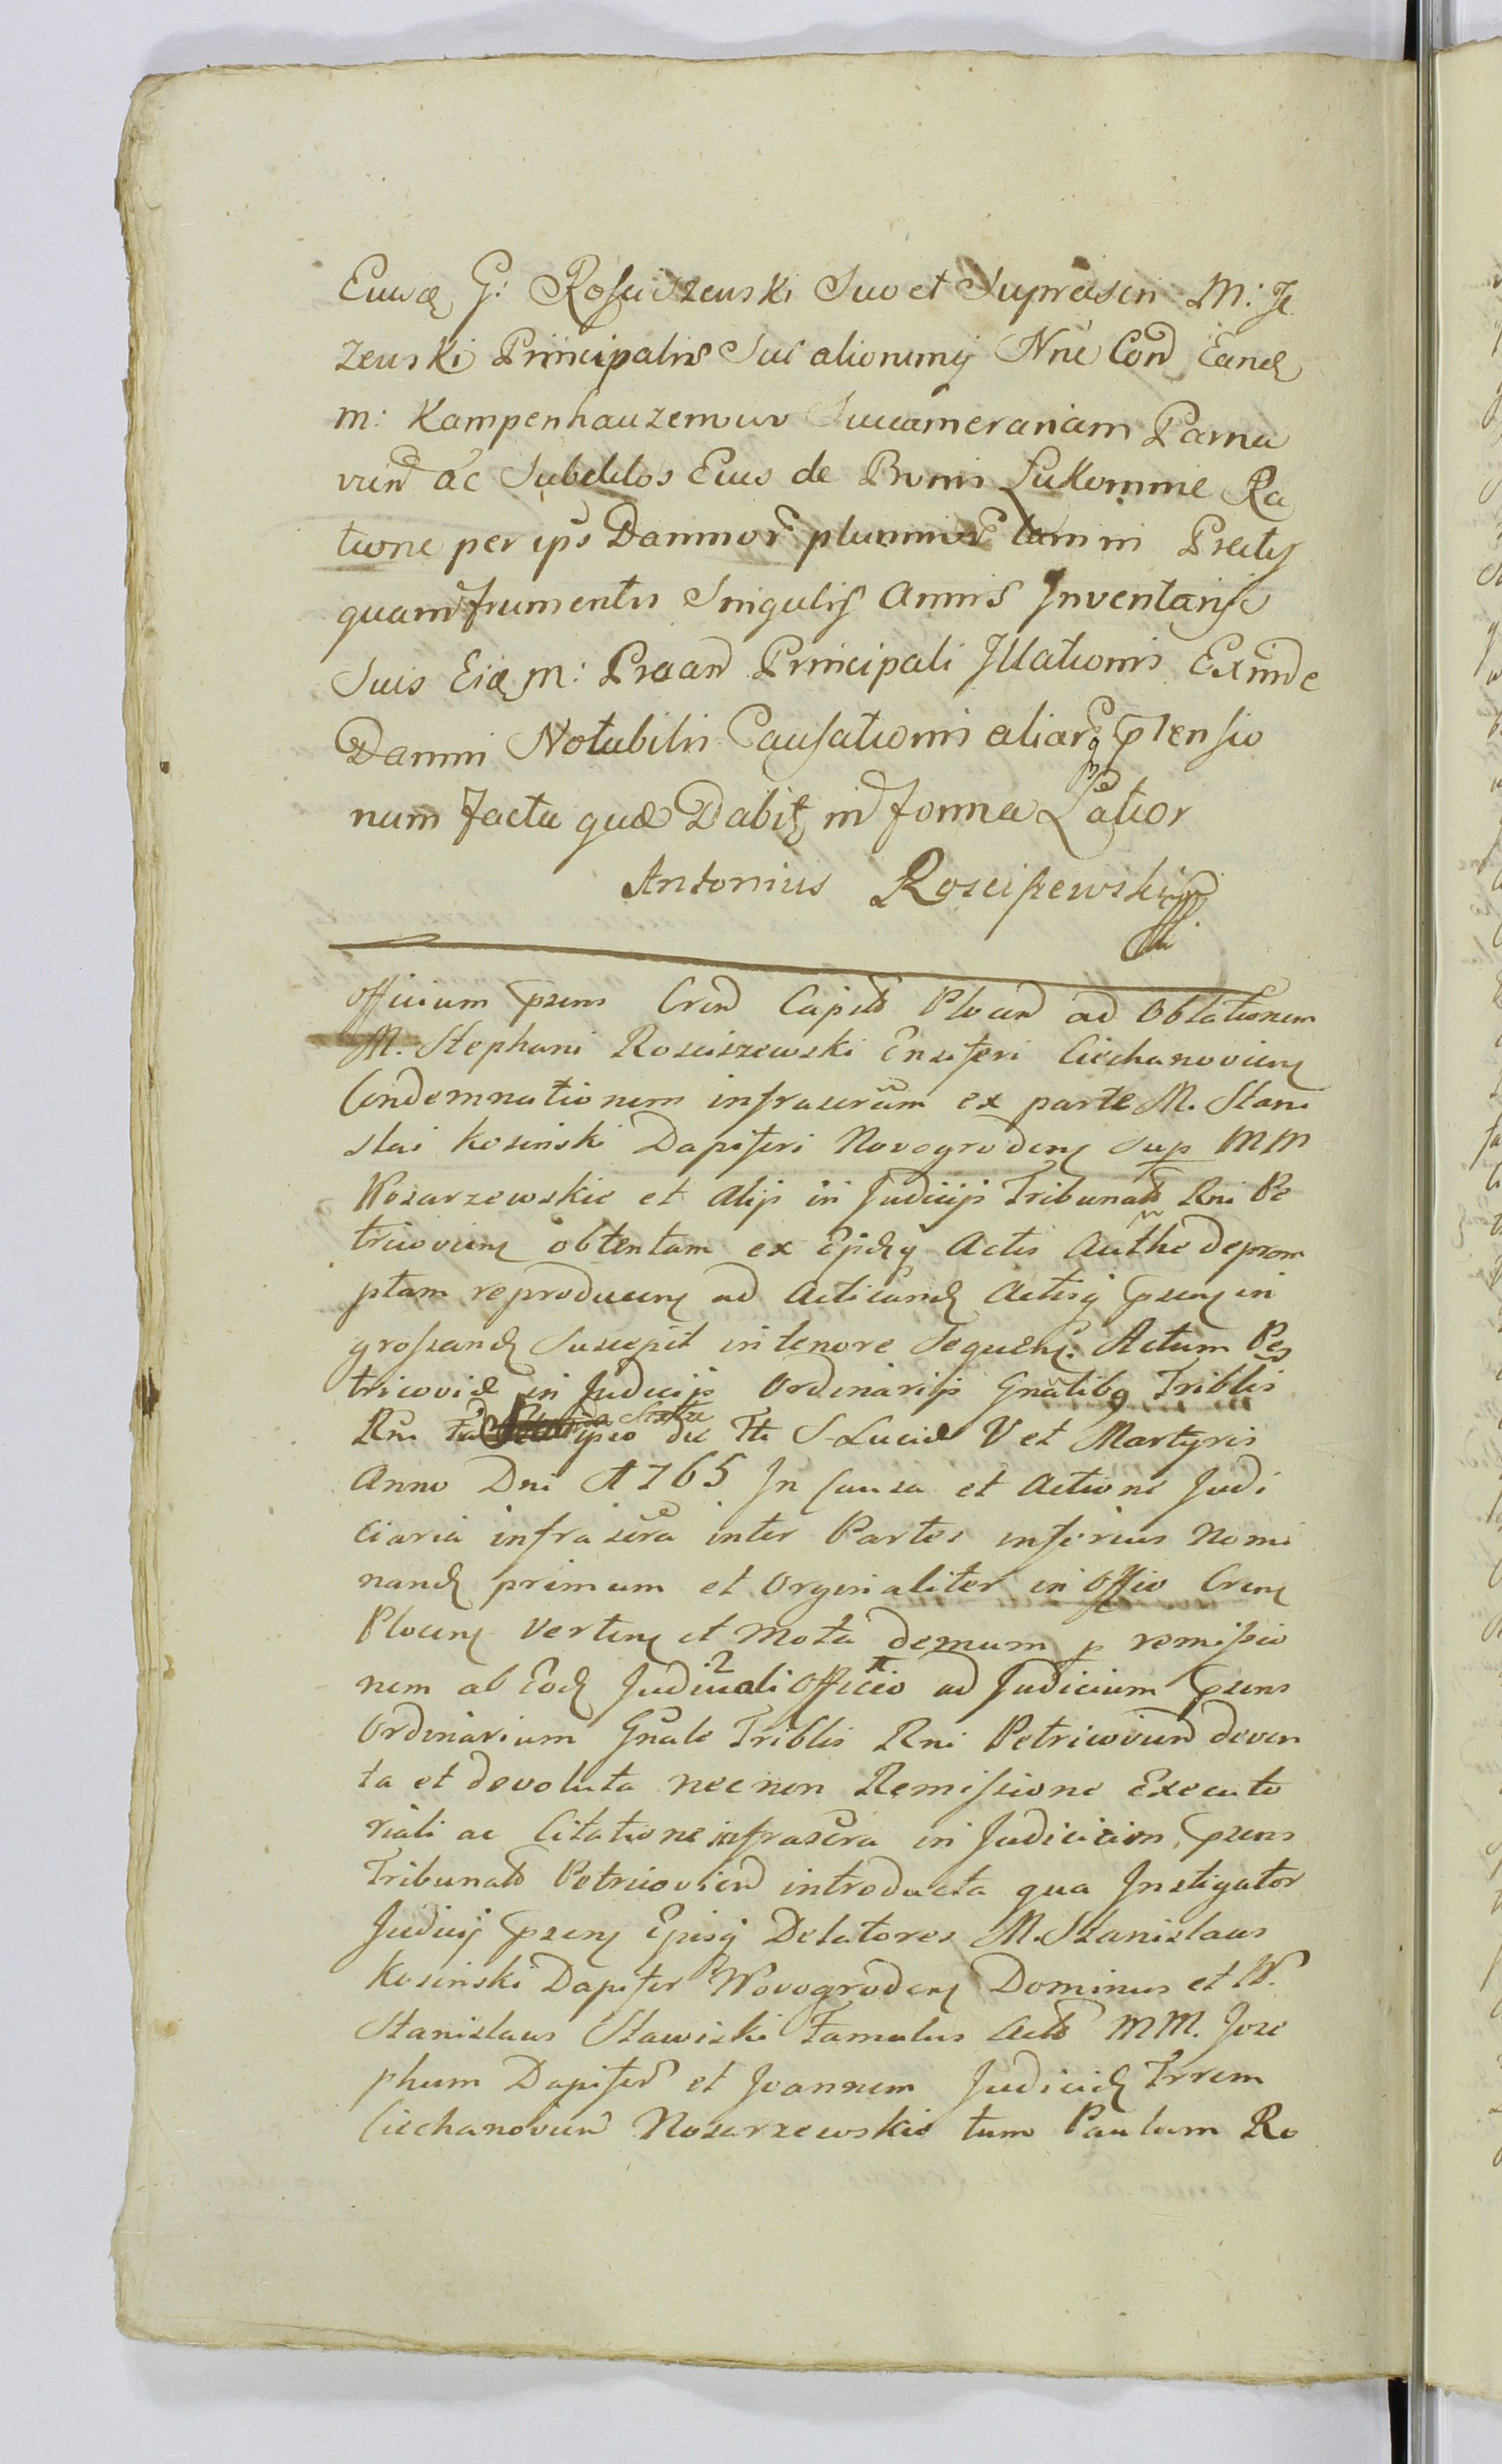 Euwę G: Rosciszewski Suo et Suprascri M: Je
zewski Principalis Sui aliorumq Nne Con Eand
m: Kampenhauzenowo Succamerariam Parna
vien ac Subditos Eius de Bonis Łukomie Ra
tione per ips Damnor plurimor tam in Pratis
quam frumentis Singulis Annis Inventarijs
Suis Eidem M: Praan Principali Illationis Exinde
Damni Notabilis Causationis aliarq prtensio
num facta quæ Dabitr in forma Latior
Antonius Rosciszewski mp
Officium prsens Cren Capitle Plocen ad Oblationem
M. Stephani Rosciszewski Ensiferi Ciechanoviens
Condemnationem infrascram ex parte M. Stani
slai Kosinski Dapiferi Novogrodens sup MM
Nosarzewskie et alijs in Judicijs Tribunals Rni Pe
tricoviens obtentam ex Ejsdq Actis Authe deprom
ptam reproducens ad Acticand Actisq prsens in
grossand suscepit in tenore sequens. Actum Pe
tricoviæ in Judicijs Ordinarijs Gnalibq Triblis
Rni ipso die Fti S. Luciæ V et Martyris
Anno Dni 1765 In Causa et Actione Judi
ciaria infrascra inter Partes inferius Nomi
nand primum et Orginaliter in Offio Crens
Plocens Vertens et Mota demum p remissio
nem ab Eod Judiciali Officio ad Judicium prsens
Ordinarium Gnale Triblis Rni Petricovien deven
ta et devoluta nec non Remissione Executo
riali ac Citatione infrascra in Judicium prsens
Tribunals Petricovien introducta qua Instigator
Judicij prsens Ejusq Delatores M. Stanislaus
Kosinski Dapifer Novogrodens Dominus et N.
Stanislaus Slawiski Famulus Acts MM. Jose
phum Dapifer et Joannem Judicid Trrem
Ciechanovien Nosarzewskie tum Paulum Ro